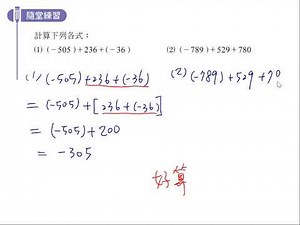 隨堂練習
計算下列各式：
(1) (－505)＋236＋(－36)
(2) (－789)＋529＋780
(1) (-505)+236+(-36)
= (-505)+[236+(-36)]
= (-505)+200
= -305
(2) (-789)+529+70
好算